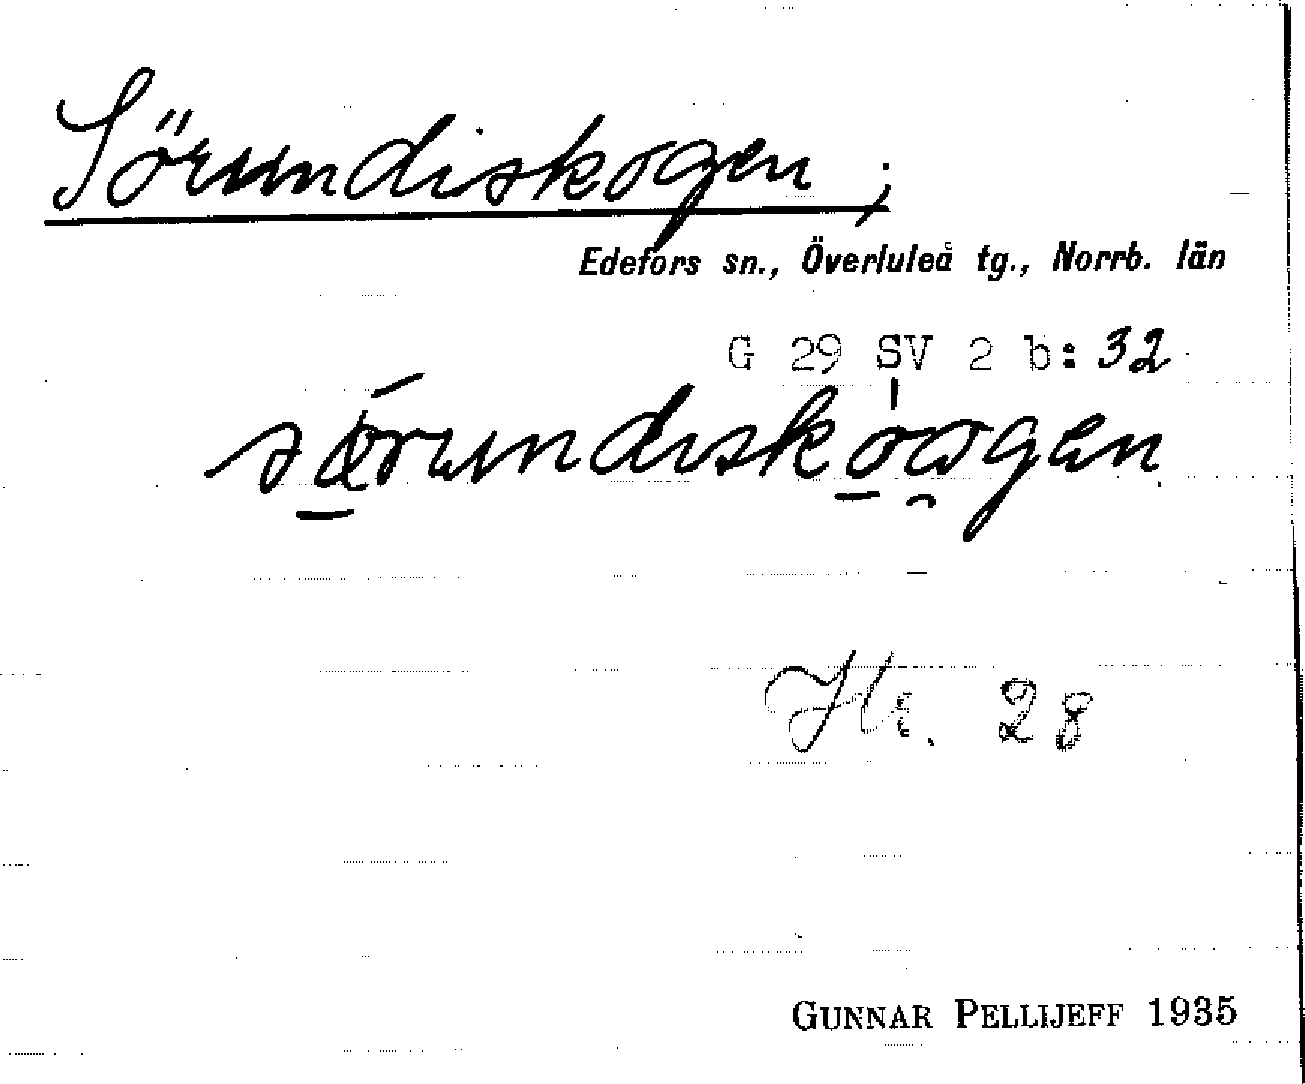 Sörundiskogen;
Edefors sn., Överluleå tg., Norrb. län
G 29 SV 2 b:32
särundiskoogen
Htr. 28
GUNNAR PELLIJEFF 1935